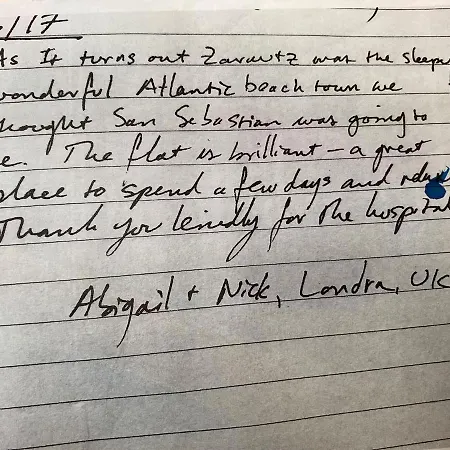 /17
As It turns out Zarautz was the sleepy
wonderful Atlantic beach town we
thought San Sebastian was going to
be. The flat is brilliant – a great
place to spend a few days and relax
Thank you kindly for the hospital
Abigail + Nick, Londra, UK